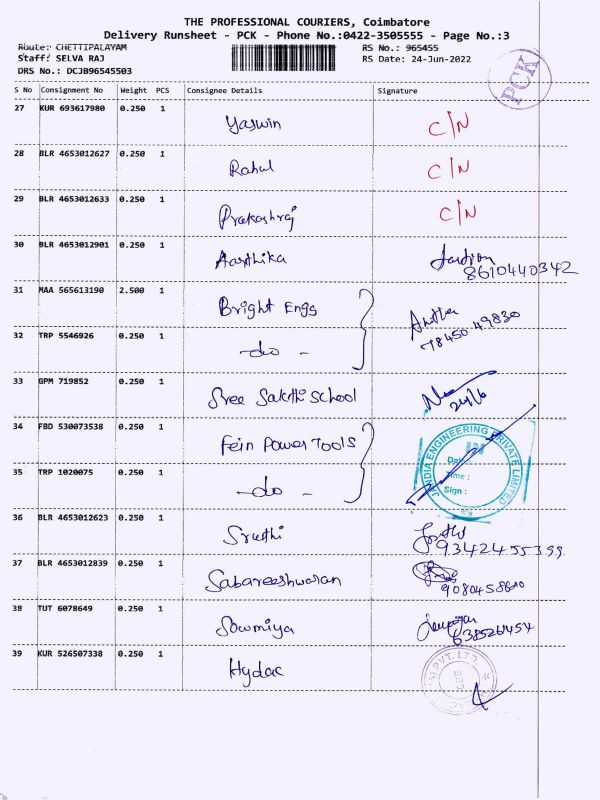 THE PROFESSIONAL COURIERS, Coimbatore
Delivery Runsheet - PCK - Phone No.:0422-3505555 - Page No.:3
Route: CHETTIPALAYAM RS No.: 965455
Staff: SELVA RAJ RS Date: 24-Jun-2022
DRS No.: DCJB96545503
PCK
S No Consignment No Weight PCS Consignee Details Signature
27 KUR 693617980 0.250 1 Yaswin C/N
28 BLR 4653012627 0.250 1 Rahul C/N
29 BLR 4653012633 0.250 1 Prakashraj C/N
30 BLR 4653012901 0.250 1 Aarthika
8610440342
31 MAA 565613190 2.500 1 Bright Engs
78450 49830
32 TRP 5546926 0.250 1 -do-
33 GPM 719852 0.250 1 Sree Sakthi School
24/6
34 FBD 530073538 0.250 1 Fein Power Tools
ENGINEERING PRIVATE LIMITED
35 TRP 1020075 0.250 1 -do-
Sign :
36 BLR 4653012623 0.250 1 Sruthi
9342455399
37 BLR 4653012839 0.250 1 Sabareeshwaran
38 TUT 6078649 0.250 1 Sowmiya
39 KUR 526507338 0.250 1 Hydac
PVT. LTD.